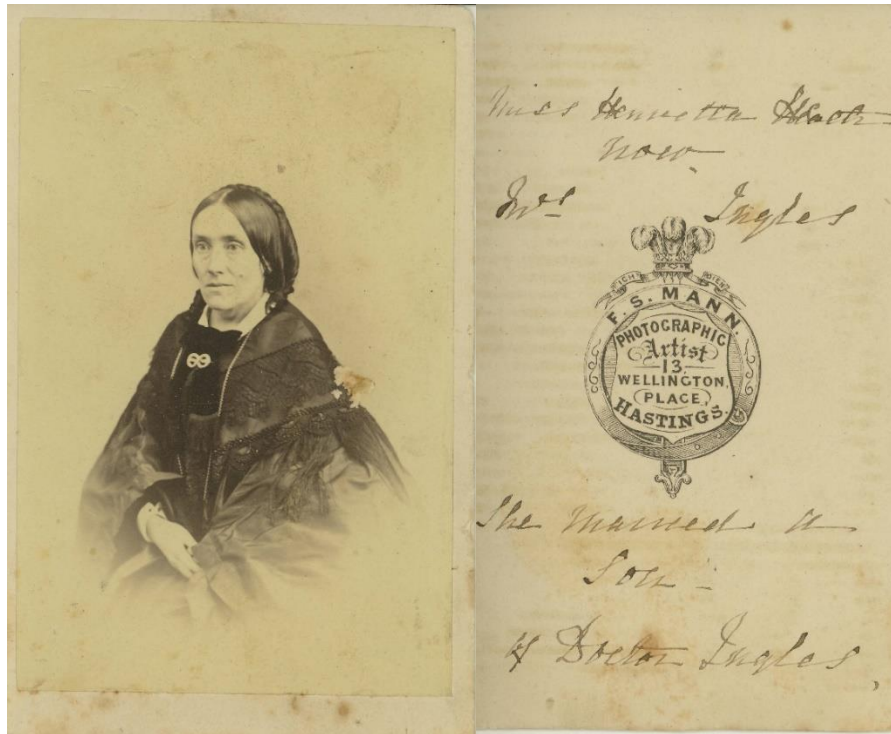 Miss Henrietta
now
Mrs Ingles
ICH DIEN
F. S. MANN.
PHOTOGRAPHIC
Artist
13
WELLINGTON,
PLACE,
HASTINGS.
She married a
Son -
of Doctor Ingles,